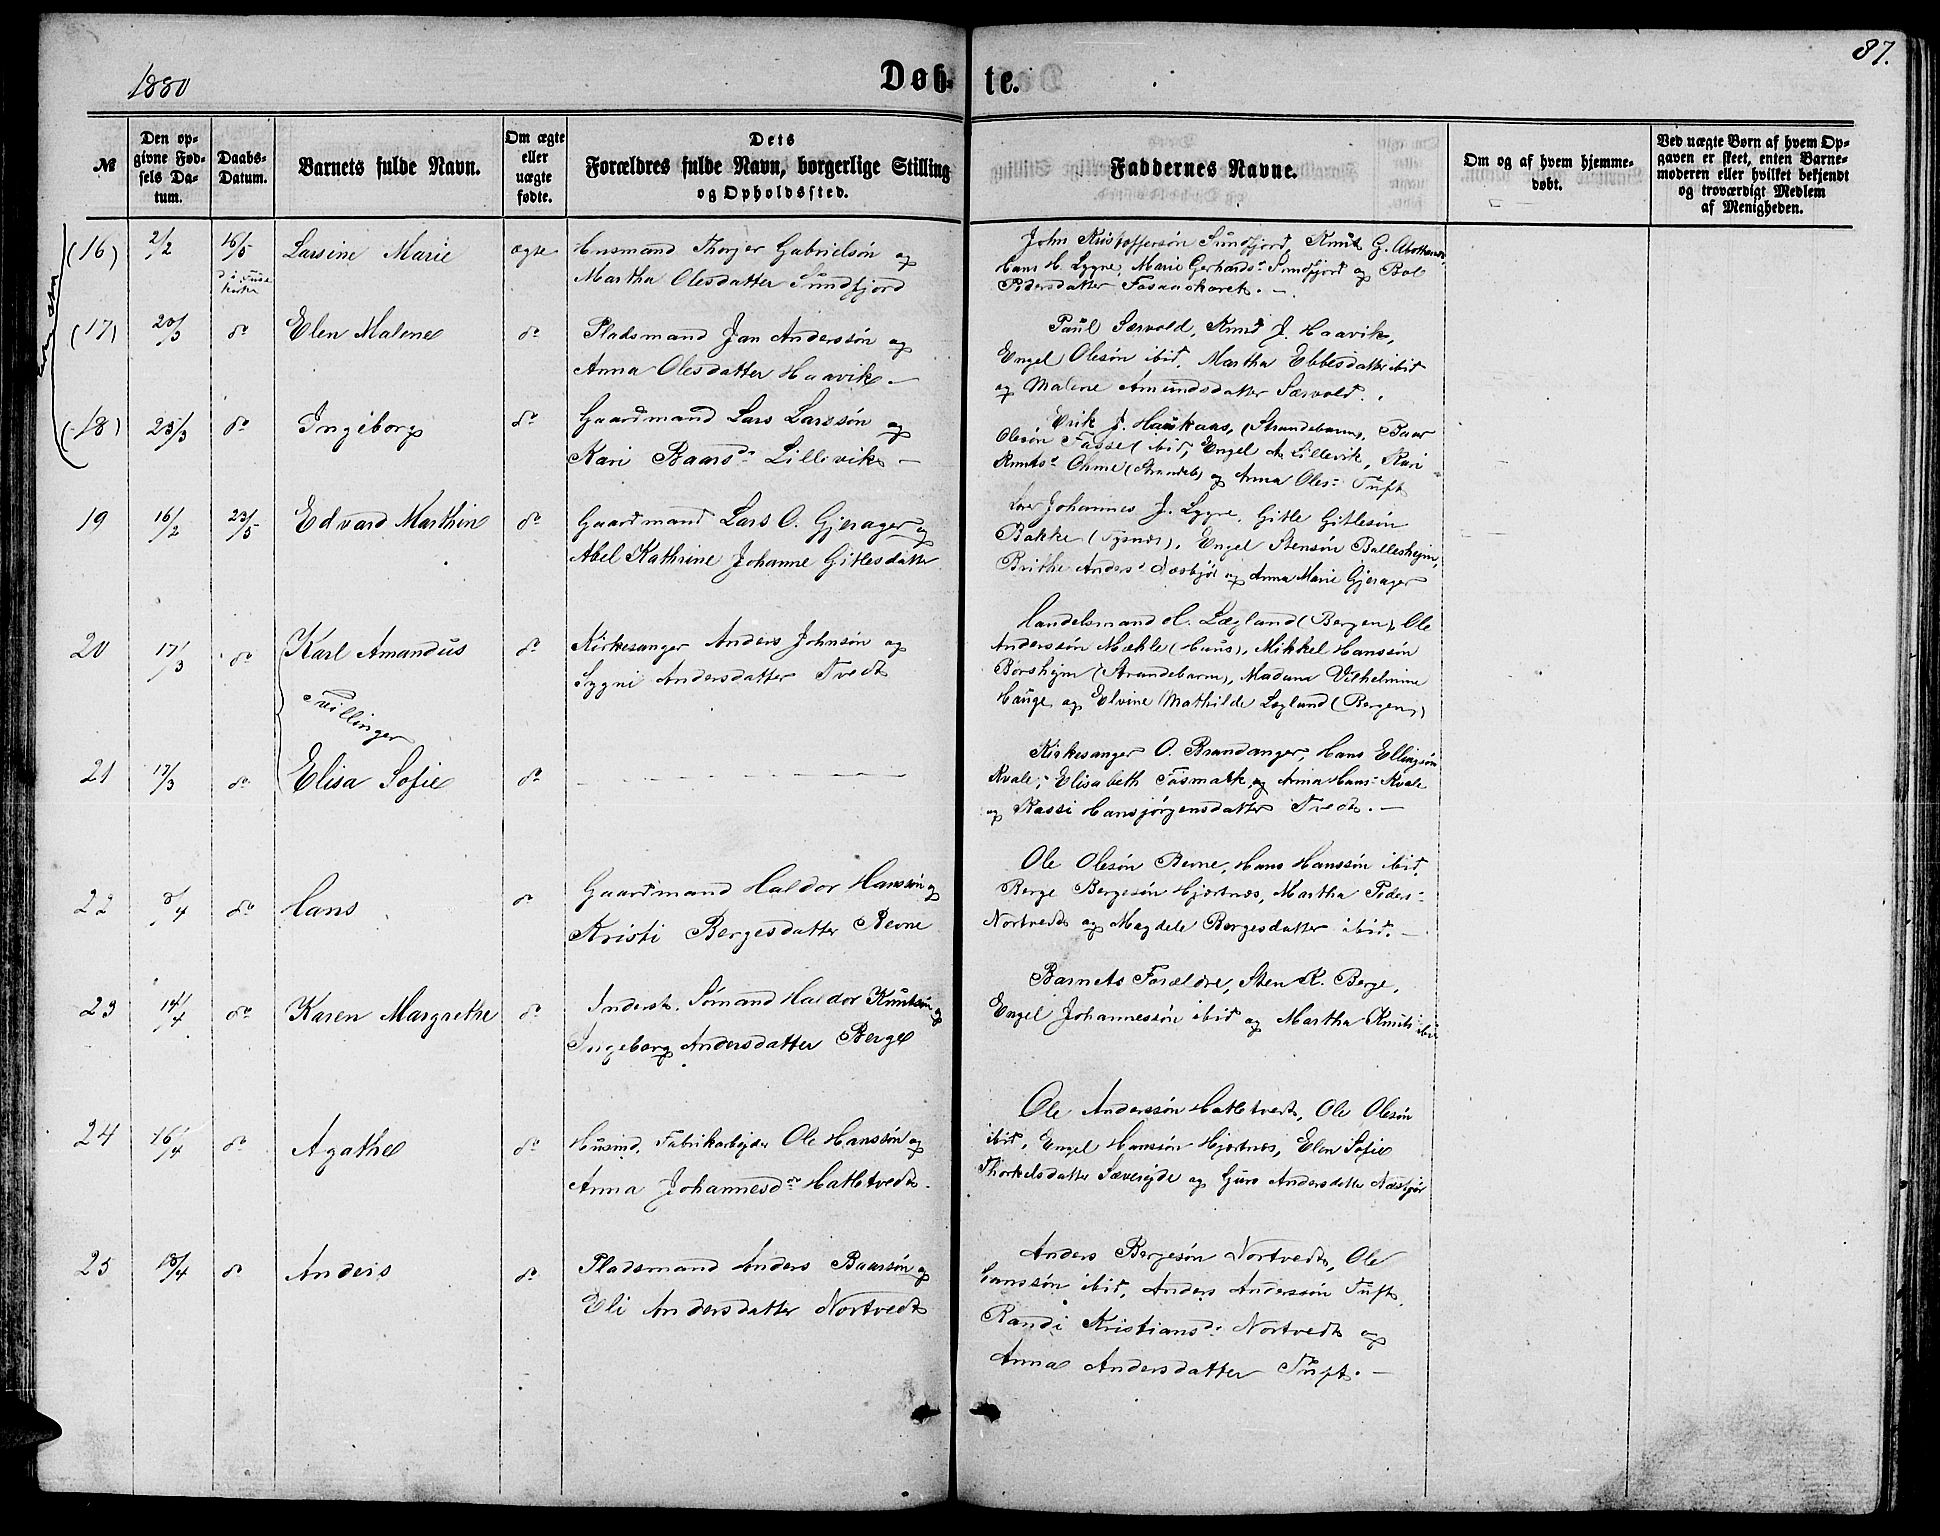 1880
Døbte.
87.
№
Den opgivne Fødsels Datum.
Daabs-Datum.
Barnets fulde Navn.
Om ægte eller uægte fødte.
Dets Forældres fulde Navn, borgerlige Stilling og Opholdssted.
Faddernes Navne.
Om og af hvem hjemmedøbt.
Ved uægte Børn af hvem Opgaven er skeet, enten Barnemoderen eller hvilket bekjendt og troværdigt Medlem af Menigheden.
(16) 2/2 16/5 Larsine Marie ægte Husmand Thorger Gabrielsøn og
Martha Olesdatter Sundfjord
John Kristoffersøn Sundfjord, Knut G.
Hans H. Lygre, Marie Gerhardsd Sundfjord og
Pedersdatter Fusaaskaret.
(17) 20/3 do Elen Malene do Pladsmand Jan Anderssøn og
Anna Olesdatter Haavik
Paul Særvold, Knud J. Haavik,
Engel Olesøn ibid, Martha Ebbesdatter ibid
og Malene Amundsdatter Særvold.
(18) 23/3 do Ingeborg do Gaardmand Lars Larssøn og
Kari Baarsdr Lillevik
Erik J. Haukaas, (Strandebarm),
Olesøn ibid, Engel A. Lillevik, Kari
Knutsd (Strandeb) og Anna Olesd Tuft
19 16/2 23/5 Edvard Marthin do Gaardmand Lars O. Gjerager og
Abel Kathrine Johanne Gitlesdatter
Johannes J. Lygre, Gitle Gitlesøn
Bakke (Tysnæs), Engel Stensøn Ballesheim,
Brithe Andersd Næsbjør og Anna Marie Gjerager
20 17/3 do Karl Amandus do Kirkesanger Anders Johnsøn og
Sygni Andersdatter Tvedt
Handelsmand H. Lægland (Bergen), Ole
Anderssøn Mæhle (Haus), Mikkel Hanssøn
Borsheim (Strandebarm), Madam Vilhelmine
Hauge og Elvine Mathilde Lægland (Bergen)
Tvillinger
21 17/3 do Elisa Sofie do
Kirkesanger O. Brandanger, Hans Ellingsøn
Kvale, Elisabeth Fasmark og Anna Hansd Kvale
og Kassi Hansjørgensdatter Tvedt.
22 8/4 do Hans do Gaardmand Haldor Hanssøn og
Kristi Bergesdatter Revne
Ole Olesøn Revne, Hans Hanssøn ibid,
Berge Bergesøn Hjertnæs, Martha Pedersd
Nortvedt og Magdele Bergesdatter ibid.
23 14/4 do Karen Margrethe do Inderst, Sømand Haldor Knutsøn og
Ingeborg Andersdatter Berge
Barnets Forældre, Sten K. Berge,
Engel Johannessøn ibid og Martha Knutsd ibid
24 16/4 do Agathe do Husmd, Fabrikarbeider Ole Hanssøn og
Anna Johannesdtr Hatletvedt
Ole Anderssøn Hatletvedt, Ole Olesøn
ibid, Engel Hanssøn Hjertnæs, Elen Sofie
Thorkelsdatter Sævereide og Guro Andersdatter Næsbjør
25 18/4 do Anders do Pladsmand Anders Baarsøn og
Eli Andersdatter Nortvedt
Anders Bergesøn Nortvedt, Ole
Hanssøn ibid, Anders Anderssøn Tuft,
Randi Kristiansdr Nortvedt og
Anna Andersdatter Tuft.